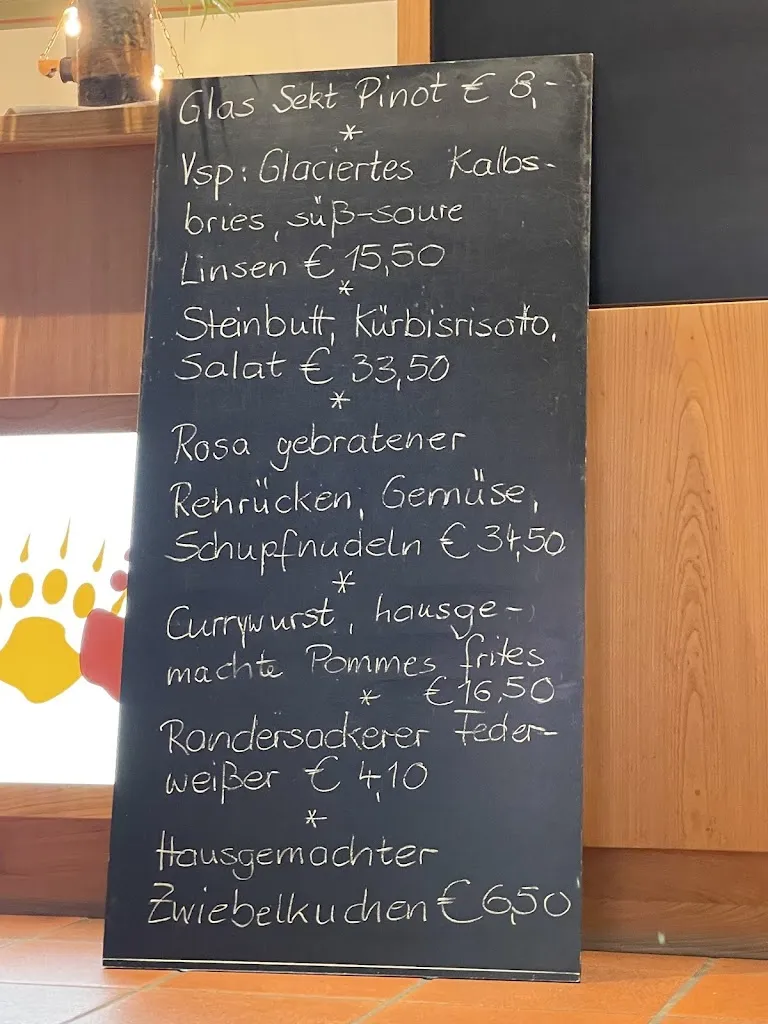 Glas Sekt Pinot € 8,-
*
Vsp: Glaciertes Kalbs-
bries, süß-saure
Linsen € 15,50
*
Steinbutt, Kürbisrisotto,
Salat € 33,50
*
Rosa gebratener
Rehrücken, Gemüse,
Schupfnudeln € 34,50
*
Currywurst, hausge-
machte Pommes frites
* € 16,50
Randersackerer Feder-
weißer € 4,10
*
Hausgemachter
Zwiebelkuchen € 6,50